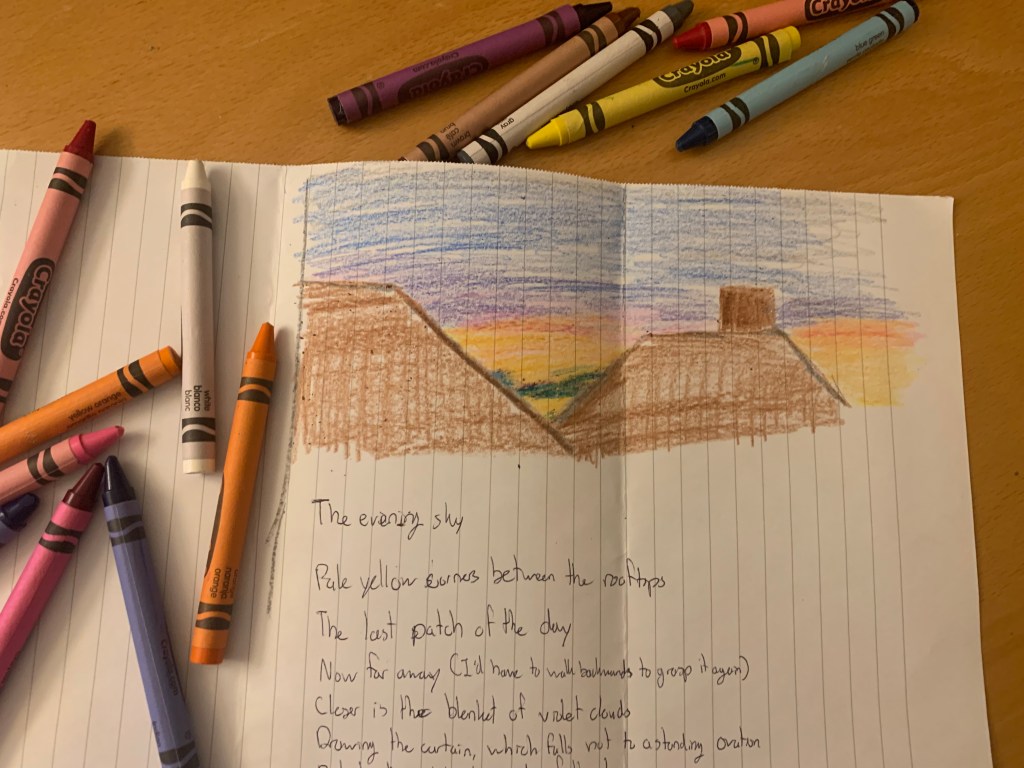 Crayola
Crayola
Crayola.com
Crayola
blue green
gray
brown
café
Crayola
Crayola.com
white
blanco
blanc
naranja
orange
The evening sky
Pale yellow corners between the rooftops
The last patch of the day
Now far away (I'd have to walk backwards to grasp it again)
Closer is the blanket of violet clouds
Drawing the curtain, which falls not to a standing ovation